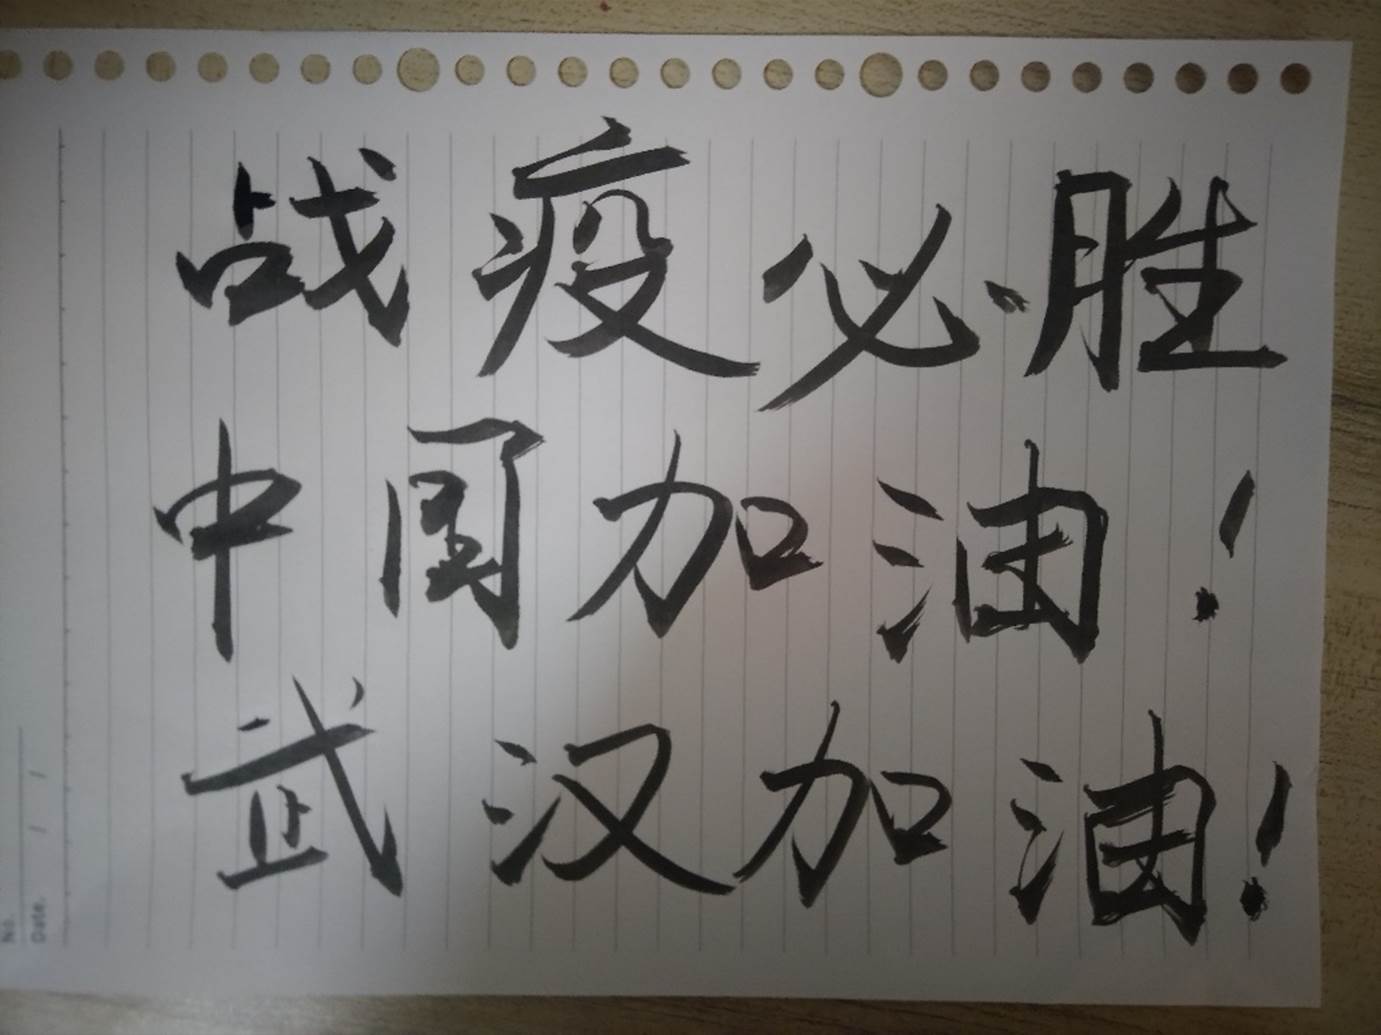 战疫必胜
中国加油!
武汉加油!
No.
Date. / /